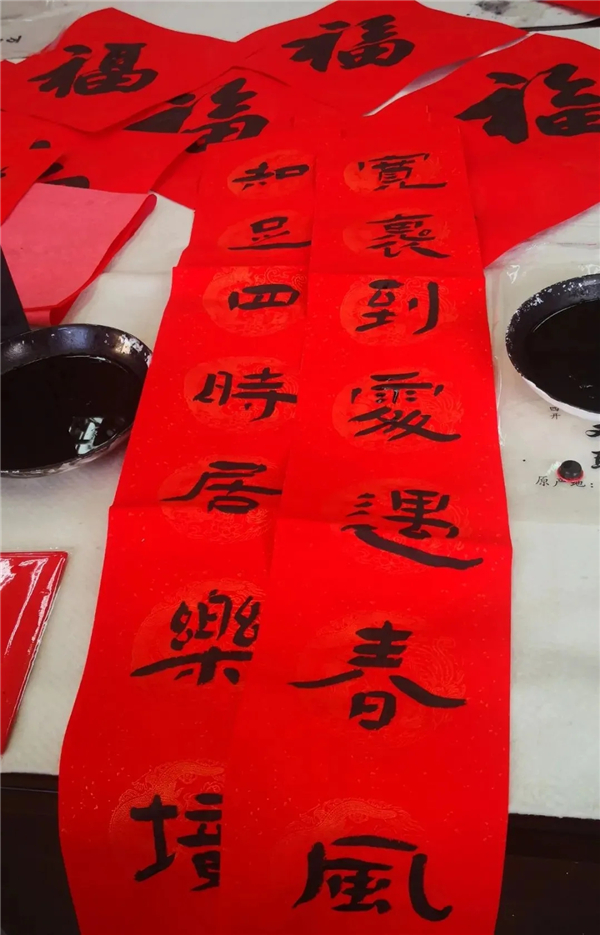 福
福
福
福
寬褱到處遇春風
知足四時居樂境
原产地: